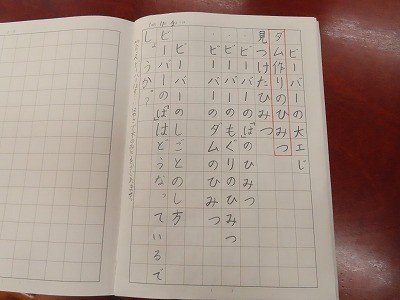 ビーバーの大工じ
ダム作りのひみつ
見つけたひみつ
ビーバーの のひみつ
ビーバーのもぐりのひみつ
ビーバーのダムのひみつ
ビーバーのしごとのし方
ビーバーの はどうなっているで
しょうか?